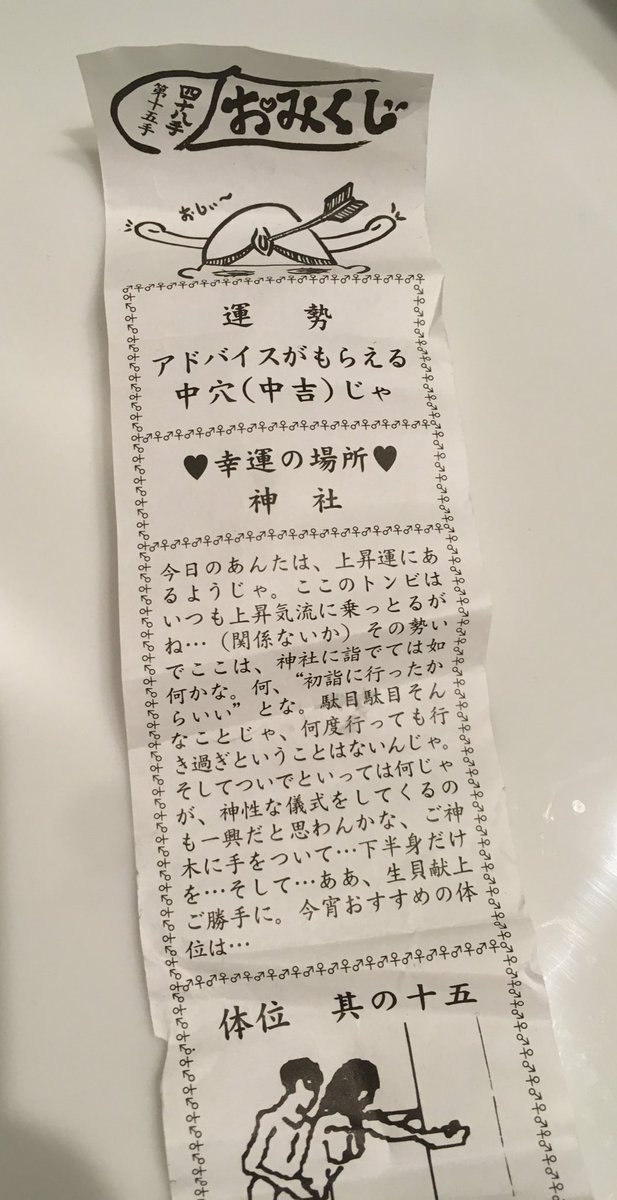 四十八手
第十五手
おみくじ
おしぃ〜
運勢
アドバイスがもらえる
中穴(中吉)じゃ
♥幸運の場所♥
神社
今日のあんたは、上昇運にあ
るようじゃ。ここのトンビは
いつも上昇気流に乗っとるが
ね…(関係ないか)その勢い
でここは、神社に詣でては如
何かな。何、“初詣に行ったか
らいい”とな。駄目駄目そん
なことじゃ、何度行っても行
き過ぎということはないんじゃ。
そしてついでといっては何じゃ
が、神性な儀式をしてくるの
も一興だと思わんかな、ご神
木に手をついて…下半身だけ
を…そして…ああ、生貝献上
ご勝手に。今宵おすすめの体
位は…
体位 其の十五